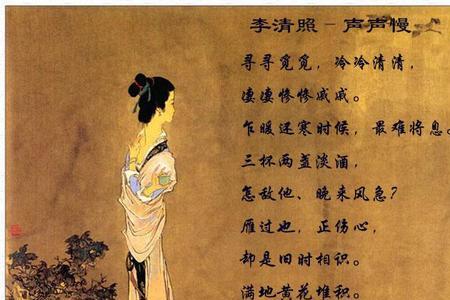 李清照－声声慢
寻寻觅觅，冷冷清清，
凄凄惨惨戚戚。
乍暖还寒时候，最难将息。
三杯两盏淡酒，
怎敌他、晚来风急？
雁过也，正伤心，
却是旧时相识。
满地黄花堆积。